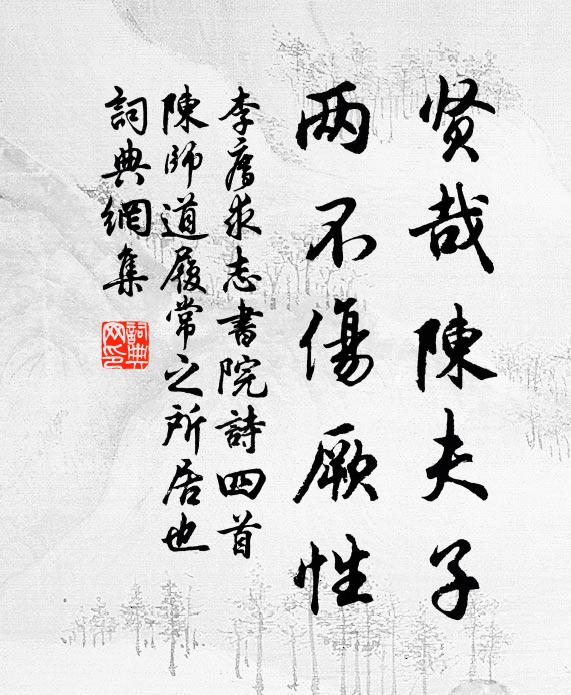 贤哉陳夫子
两不傷厥性
李廌求志書院詩四首
陳師道履常之所居也
詞典網集
詞典
网印